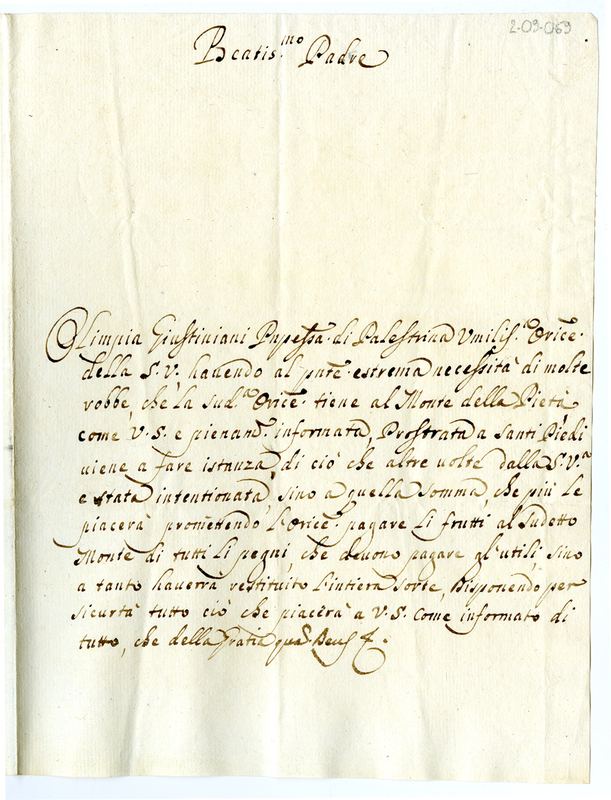 2-09-069
Beatis.mo Padre
Olimpia Giustiniani Pnpessa. di Palestrina Vmilis.a Orice.
della S. V. hauendo al pnte estrema necessità di molte
robbe, che la sud.a Orice. tiene al Monte della Pietà
come V. S. e pienam. informata, Prostrata a Santi Piedi
uiene a fare istanza, di ciò che altre uolte dalla S. V.a
e stata intentionata, sino a quella somma, che più le
piacerà promettendo l'Orice. pagare li frutti al Sudetto
Monte di tutti li pegni, che deuono pagare gl'utili, sino
a tanto hauerrà restituito l'intiera sorte, Disponendo per
sicurtà tutto ciò che piacerà a V. S. come informato di
tutto, che della Gratia Deus